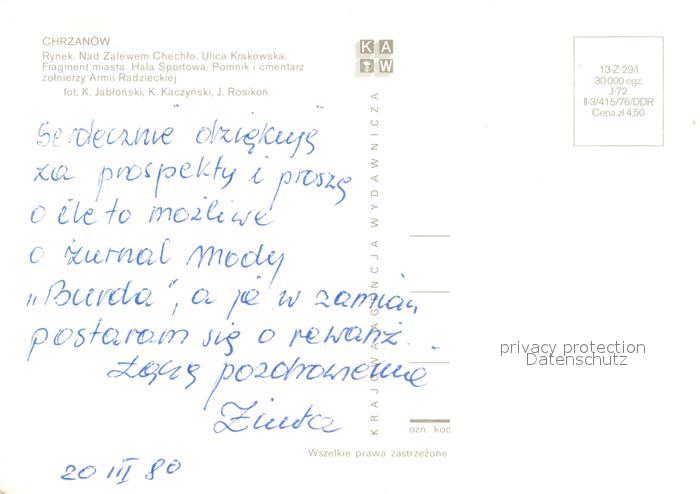 CHRZANÓW
Rynek. Nad Zalewem Chechło. Ulica Krakowska.
Fragment miasta. Hala Sportowa. Pomnik i cmentarz
żołnierzy Armii Radzieckiej
fot. K. Jabłoński, K. Kaczyński, J. Rosikoń
K A
W
13-Z-29/I
30 000 egz.
J-72
II-3/415/76/DDR
Cena zł 4,50
Serdecznie dziękuję
za prospekty i proszę
o ile to możliwe
o żurnal mody
„Burda", a ja w zamian
postaram się o rewanż.
Łączę pozdrowienia
20 III 80
KRAJOWA AGENCJA WYDAWNICZA
privacy protection
Datenschutz
ozn. kod
Wszelkie prawa zastrzeżone